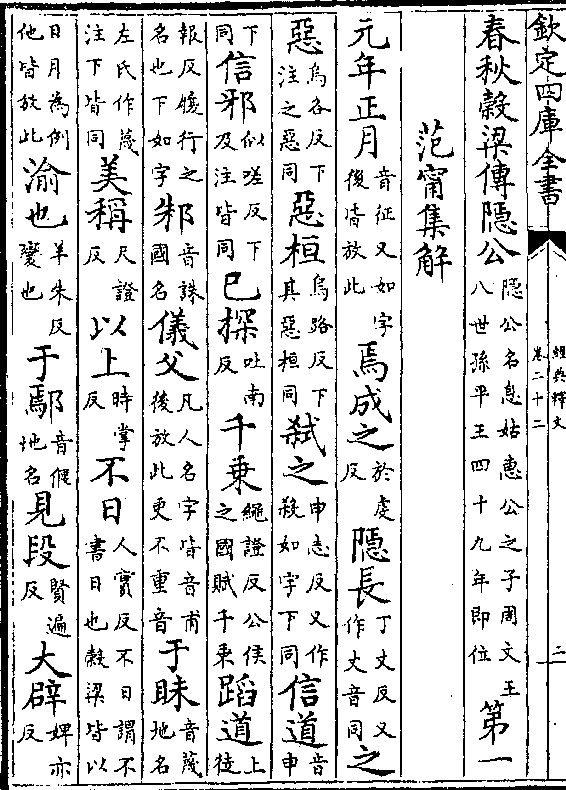 欽定四庫全書
經典釋文
卷二十二
二
春秋穀梁傳隠公隠公名息姑惠公之子周文王八世孫平王四十九年即位第一
范甯集解
元年正月音征又如字後皆放此焉成之於虔反隠長丁丈反又作丈音同之
惡烏各反下注之惡同惡桓烏路反下其惡桓同弑之申志反又作殺如字下同信道音申
下同信邪似嗟反下及注皆同已探吐南反千乗繩證反公侯之國賦千乗蹈道上徒
報反履行之名也下如字邾音誅國名儀父凡人名字皆音甫後放此更不重音于眛音蔑地名
左氏作蔑注下皆同美稱尺證反以上時掌反不日人實反不日謂不書日也穀梁皆以
日月為例他皆放此渝也羊朱反變也于鄢音偃地名見段賢遍反大辟婢亦反